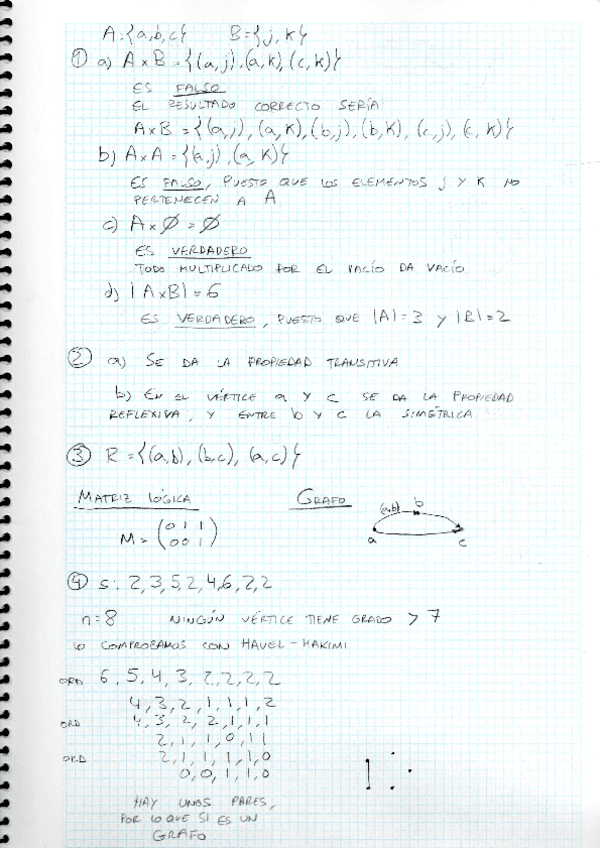 A:{a,b,c} B={j,k}
① a) A x B = {(a,j),(a,k),(c,k)}
ES FALSO
EL RESULTADO CORRECTO SERÍA
A x B = {(a,j),(a,k),(b,j),(b,k),(c,j),(c,k)}
b) A x A = {(a,j),(a,k)}
ES FALSO, PUESTO QUE LOS ELEMENTOS j Y K NO
PERTENECEN A A
c) A x ∅ = ∅
ES VERDADERO
TODO MULTIPLICADO POR EL VACÍO DA VACÍO
d) |A x B| = 6
ES VERDADERO, PUESTO QUE |A|=3 y |B|=2
② a) SE DA LA PROPIEDAD TRANSITIVA
b) EN EL VÉRTICE a Y C SE DA LA PROPIEDAD
REFLEXIVA, Y ENTRE b Y C LA SIMÉTRICA
③ R = {(a,b), (b,c), (a,c)}
MATRIZ LÓGICA GRAFO
(a,b) b
M = (0 1 1
0 0 1)
a c
④ s: 2,3,5,2,4,6,2,2
n=8 NINGÚN VÉRTICE TIENE GRADO > 7
LO COMPROBAMOS CON HAVEL-HAKIMI
ORD 6,5,4,3,2,2,2,2
4,3,2,1,1,1,2
ORD 4,3,2,2,1,1,1
2,1,1,0,1,1
ORD 2,1,1,1,1,0
0,0,1,1,0
HAY UNOS PARES,
POR LO QUE SI ES UN
GRAFO